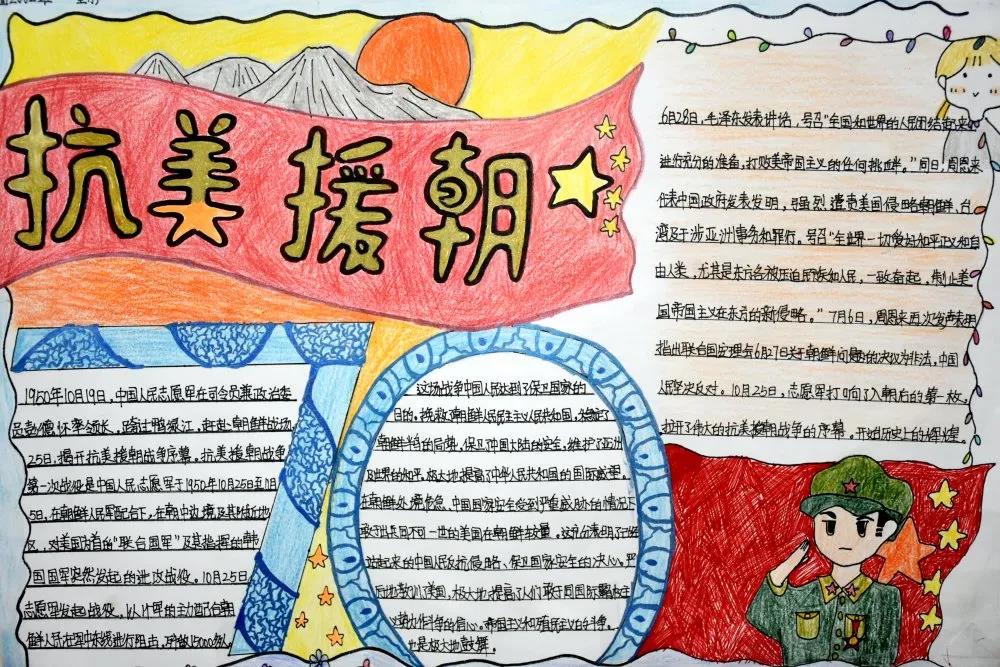 抗美援朝
70
1950年10月19日,中国人民志愿军在司令员兼政治委
员彭德怀率领下,跨过鸭绿江,开赴朝鲜战场,
25日,揭开抗美援朝战争序幕。抗美援朝战争
第一次战役是中国人民志愿军于1950年10月25日至11月
5日,在朝鲜人民军配合下,在朝中边境及其附近地
区,对美国为首的“联合国军”及其指挥的韩
国国军突然发起的进攻战役。10月25日
志愿军发起战役,以1个军的主力配合朝
鲜人民在军中东线进行阻击,歼敌15000余人。
这场战争中国人民达到了保卫家的
目的。挽救了朝鲜人民民主主义人民共和国,稳定了
朝鲜半岛的局势,保卫中国大陆的安全,维护了亚洲
及世界的和平,极大地提高了中华人民共和国的国际威望
在朝鲜处境危急、中国国家安全受到严重威胁的情况下
敢于出兵同不可一世的美国在朝鲜较量。这充分表明了已经
站起来的中国人民反侵略、保卫国家安全的决心,严
厉地教训了美国,极大地提高了人们敢于同国际霸权主
义势力斗争的信心。帝国主义和殖民主义的斗争。
也是极大地鼓舞。
6月28日,毛泽东发表讲话,号召“全国和世界的人民团结起来
进行充分的准备,打败美帝国主义的任何挑衅。”同日,周恩来
代表中国政府发表发明,强烈遣责美国侵略朝鲜、台
湾及干涉亚洲事务和罪行。号召“全世界一切爱好和平正义和自
由人类,尤其是东方各被压迫民族和人民,一致奋起,制止美
国帝国主义在东方的新侵略。”7月6日,周恩来再次发声表明
指出联合国安理会6月27日关于朝鲜问题的决议为非法,中国
人民坚决反对。10月25日,志愿军打响了入朝后的第一枚,
拉开了伟大的抗美援朝战争的序幕。开始历史上的辉煌。